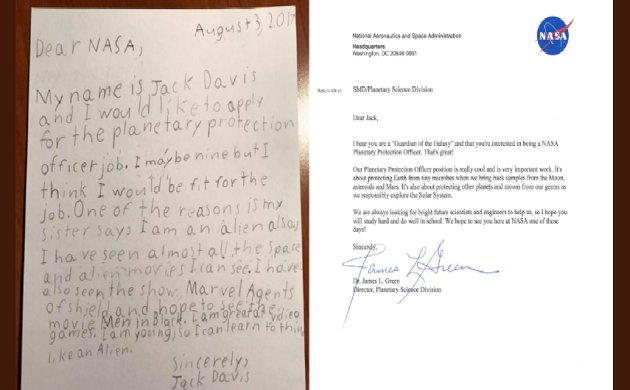 August 3, 2017
Dear NASA,
My name is Jack Davis
and I would like to apply
for the planetary protection
officer job. I may be nine but I
think I would be fit for the
job. One of the reasons is my
sister says I am an alien also
I have seen almost all the space
and alien movies I can see. I have
also seen the show Marvel Agents
of shield and hope to see the
movie Men in Black. I am great at video
games. I am young, so I can learn to think
like an Alien.
Sincerely,
Jack Davis
National Aeronautics and Space Administration
Headquarters
Washington, DC 20546-0001
NASA
SMD/Planetary Science Division
Dear Jack,
I hear you are a "Guardian of the Galaxy" and that you're interested in being a NASA
Planetary Protection Officer. That's great!
Our Planetary Protection Officer position is really cool and is very important work. It's
about protecting Earth from tiny microbes when we bring back samples from the Moon,
asteroids and Mars. It's also about protecting other planets and moons from our germs as
we responsibly explore the Solar System.
We are always looking for bright future scientists and engineers to help us, so I hope you
will study hard and do well in school. We hope to see you here at NASA one of these
days!
Sincerely,
James L Green
Dr. James L. Green
Director, Planetary Science Division